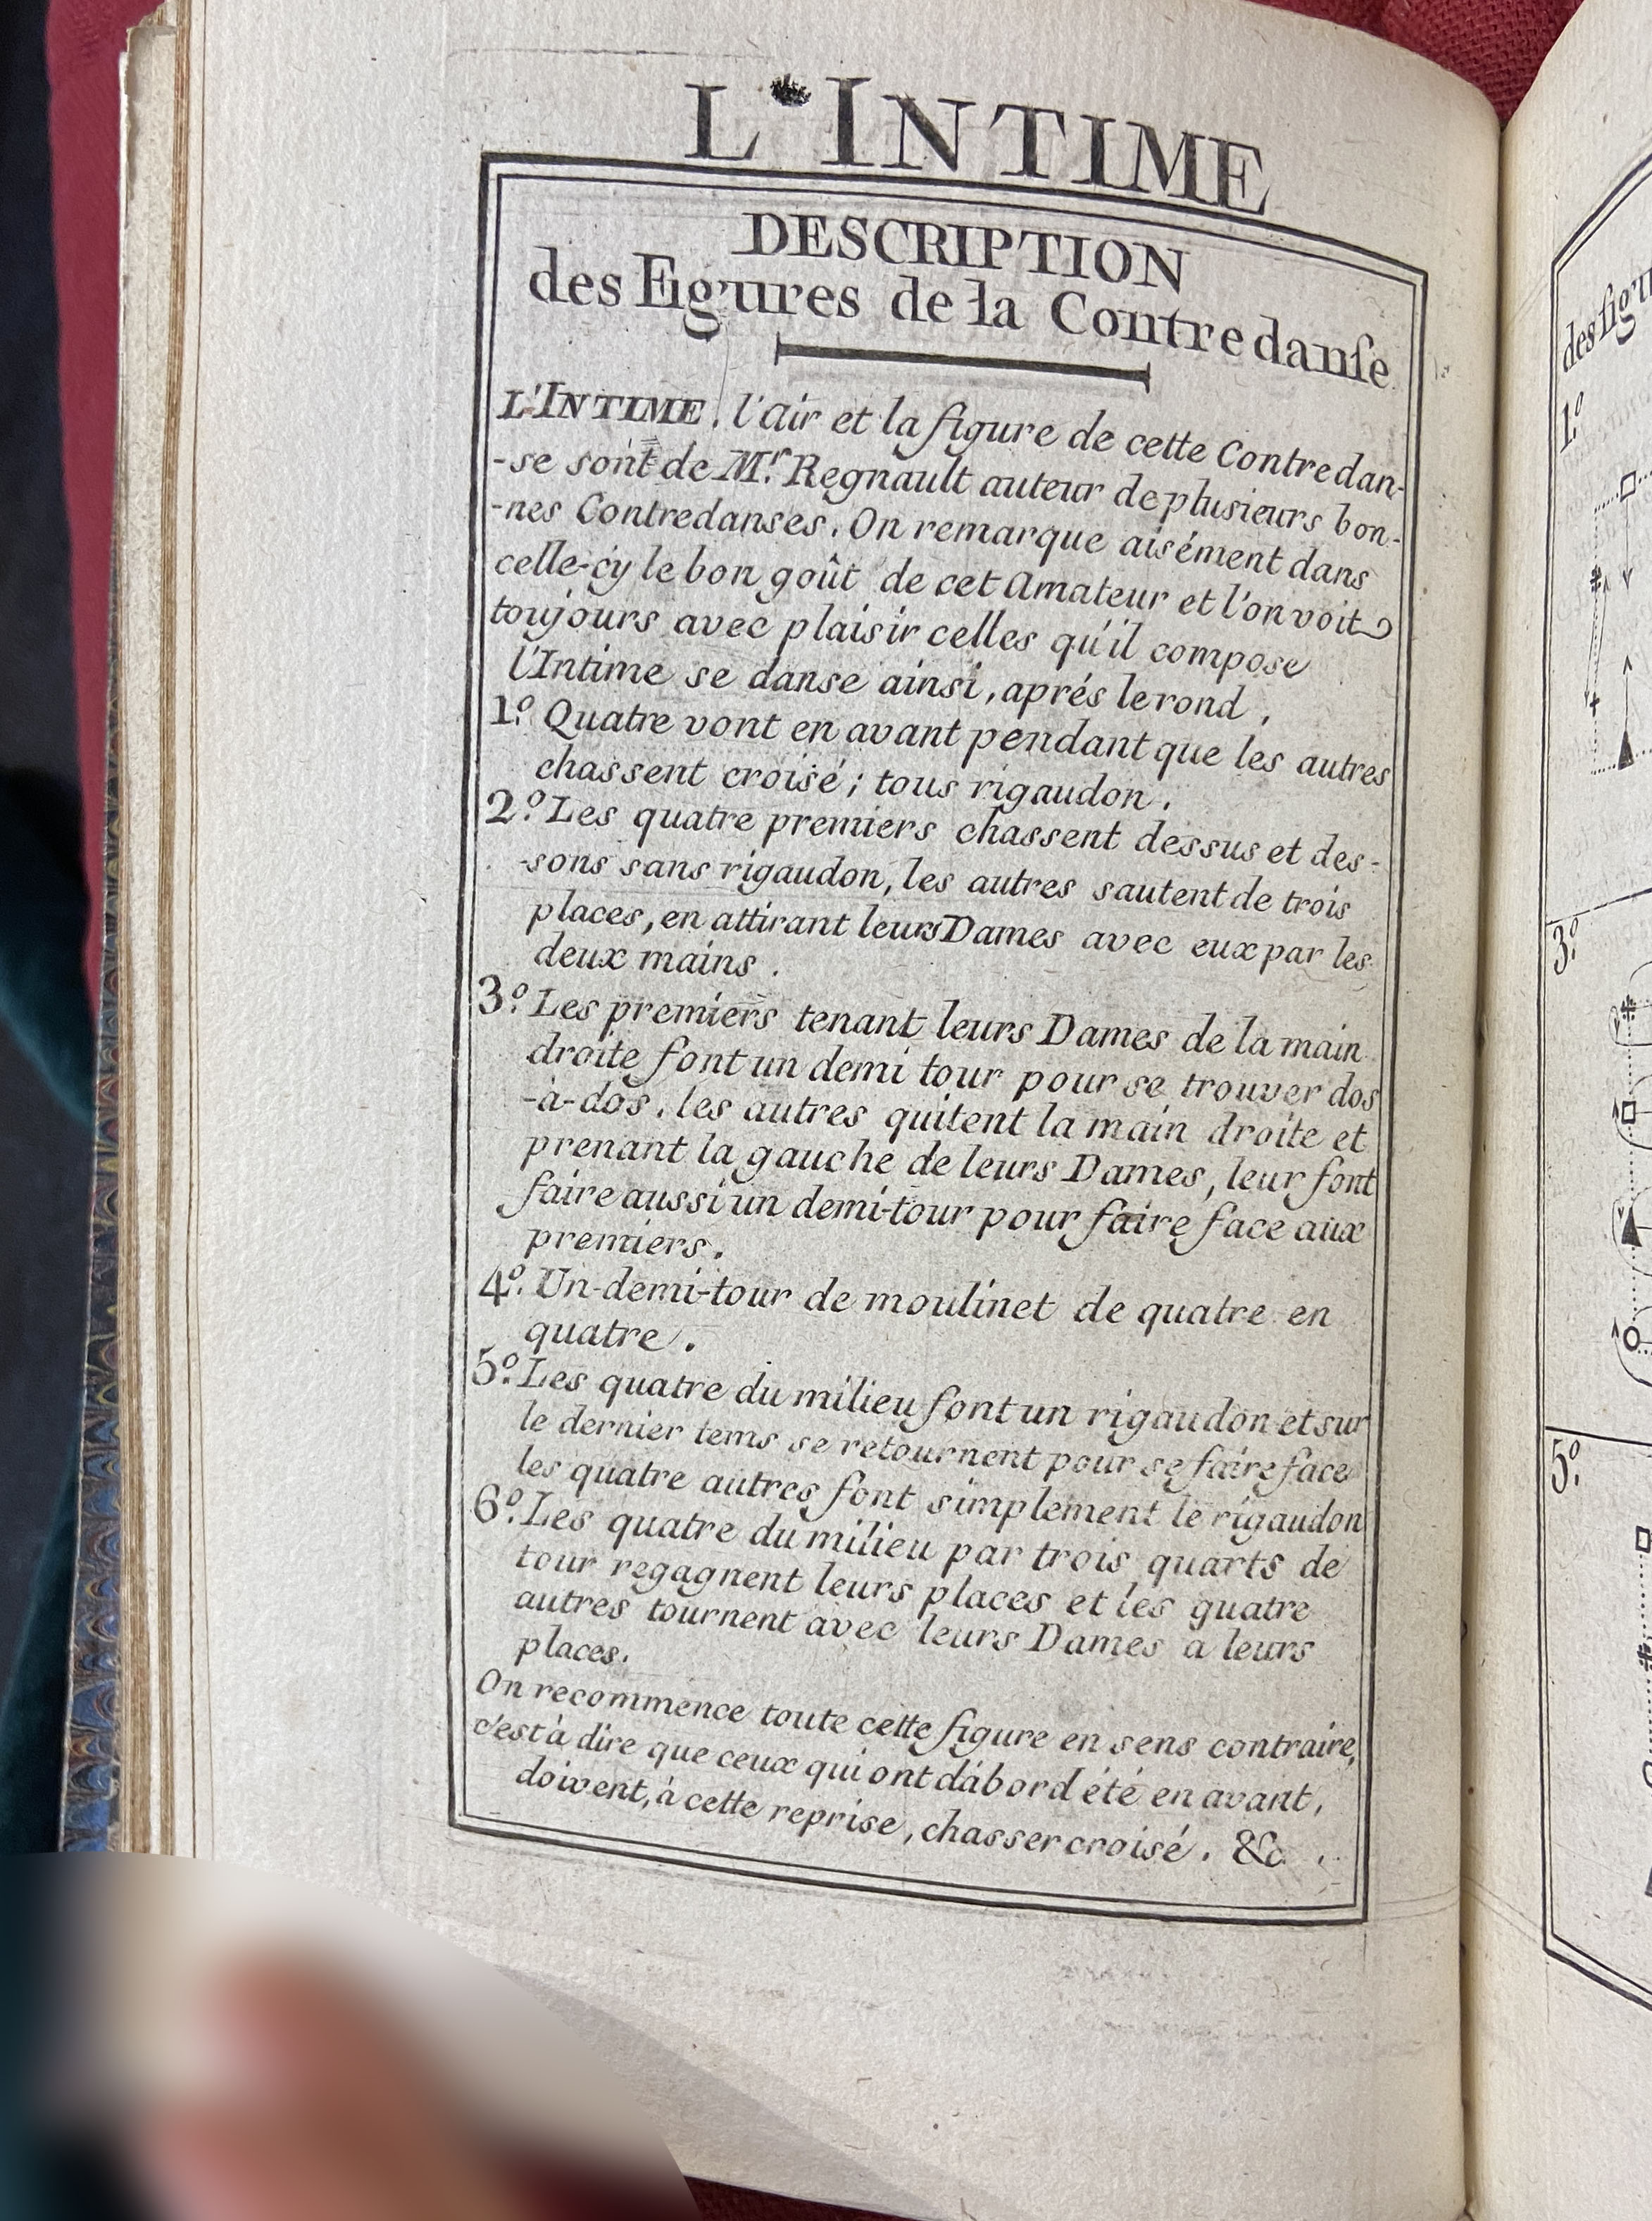 L'INTIME
DESCRIPTION
des Figures de la Contredanse
L'INTIME. l'air et la figure de cette Contredan-
-se sont de Mr. Regnault auteur de plusieurs bon-
-nes Contredanses. On remarque aisément dans
celle-cy le bon goût de cet Amateur et l'on voit
toujours avec plaisir celles qu'il compose
l'Intime se danse ainsi, aprés le rond,
1.º Quatre vont en avant pendant que les autres
chassent croisé; tous rigaudon.
2.º Les quatre premiers chassent dessus et des-
-sons sans rigaudon, les autres sautent de trois
places, en attirant leurs Dames avec eux par les
deux mains.
3.º Les premiers tenant leurs Dames de la main
droite font un demi tour pour se trouver dos
-à-dos. les autres quitent la main droite et
prenant la gauche de leurs Dames, leur font
faire aussi un demi-tour pour faire face aux
premiers.
4.º Un-demi-tour de moulinet de quatre en
quatre.
5.º Les quatre du milieu font un rigaudon et sur
le dernier tems se retournent pour se faire face
les quatre autres font simplement le rigaudon
6.º Les quatre du milieu par trois quarts de
tour regagnent leurs places et les quatre
autres tournent avec leurs Dames a leurs
places.
On recommence toute cette figure en sens contraire,
c'est à dire que ceux qui ont dábord été en avant,
doivent, à cette reprise, chasser croisé. &c.
des figu
1.º
3.º
5.º